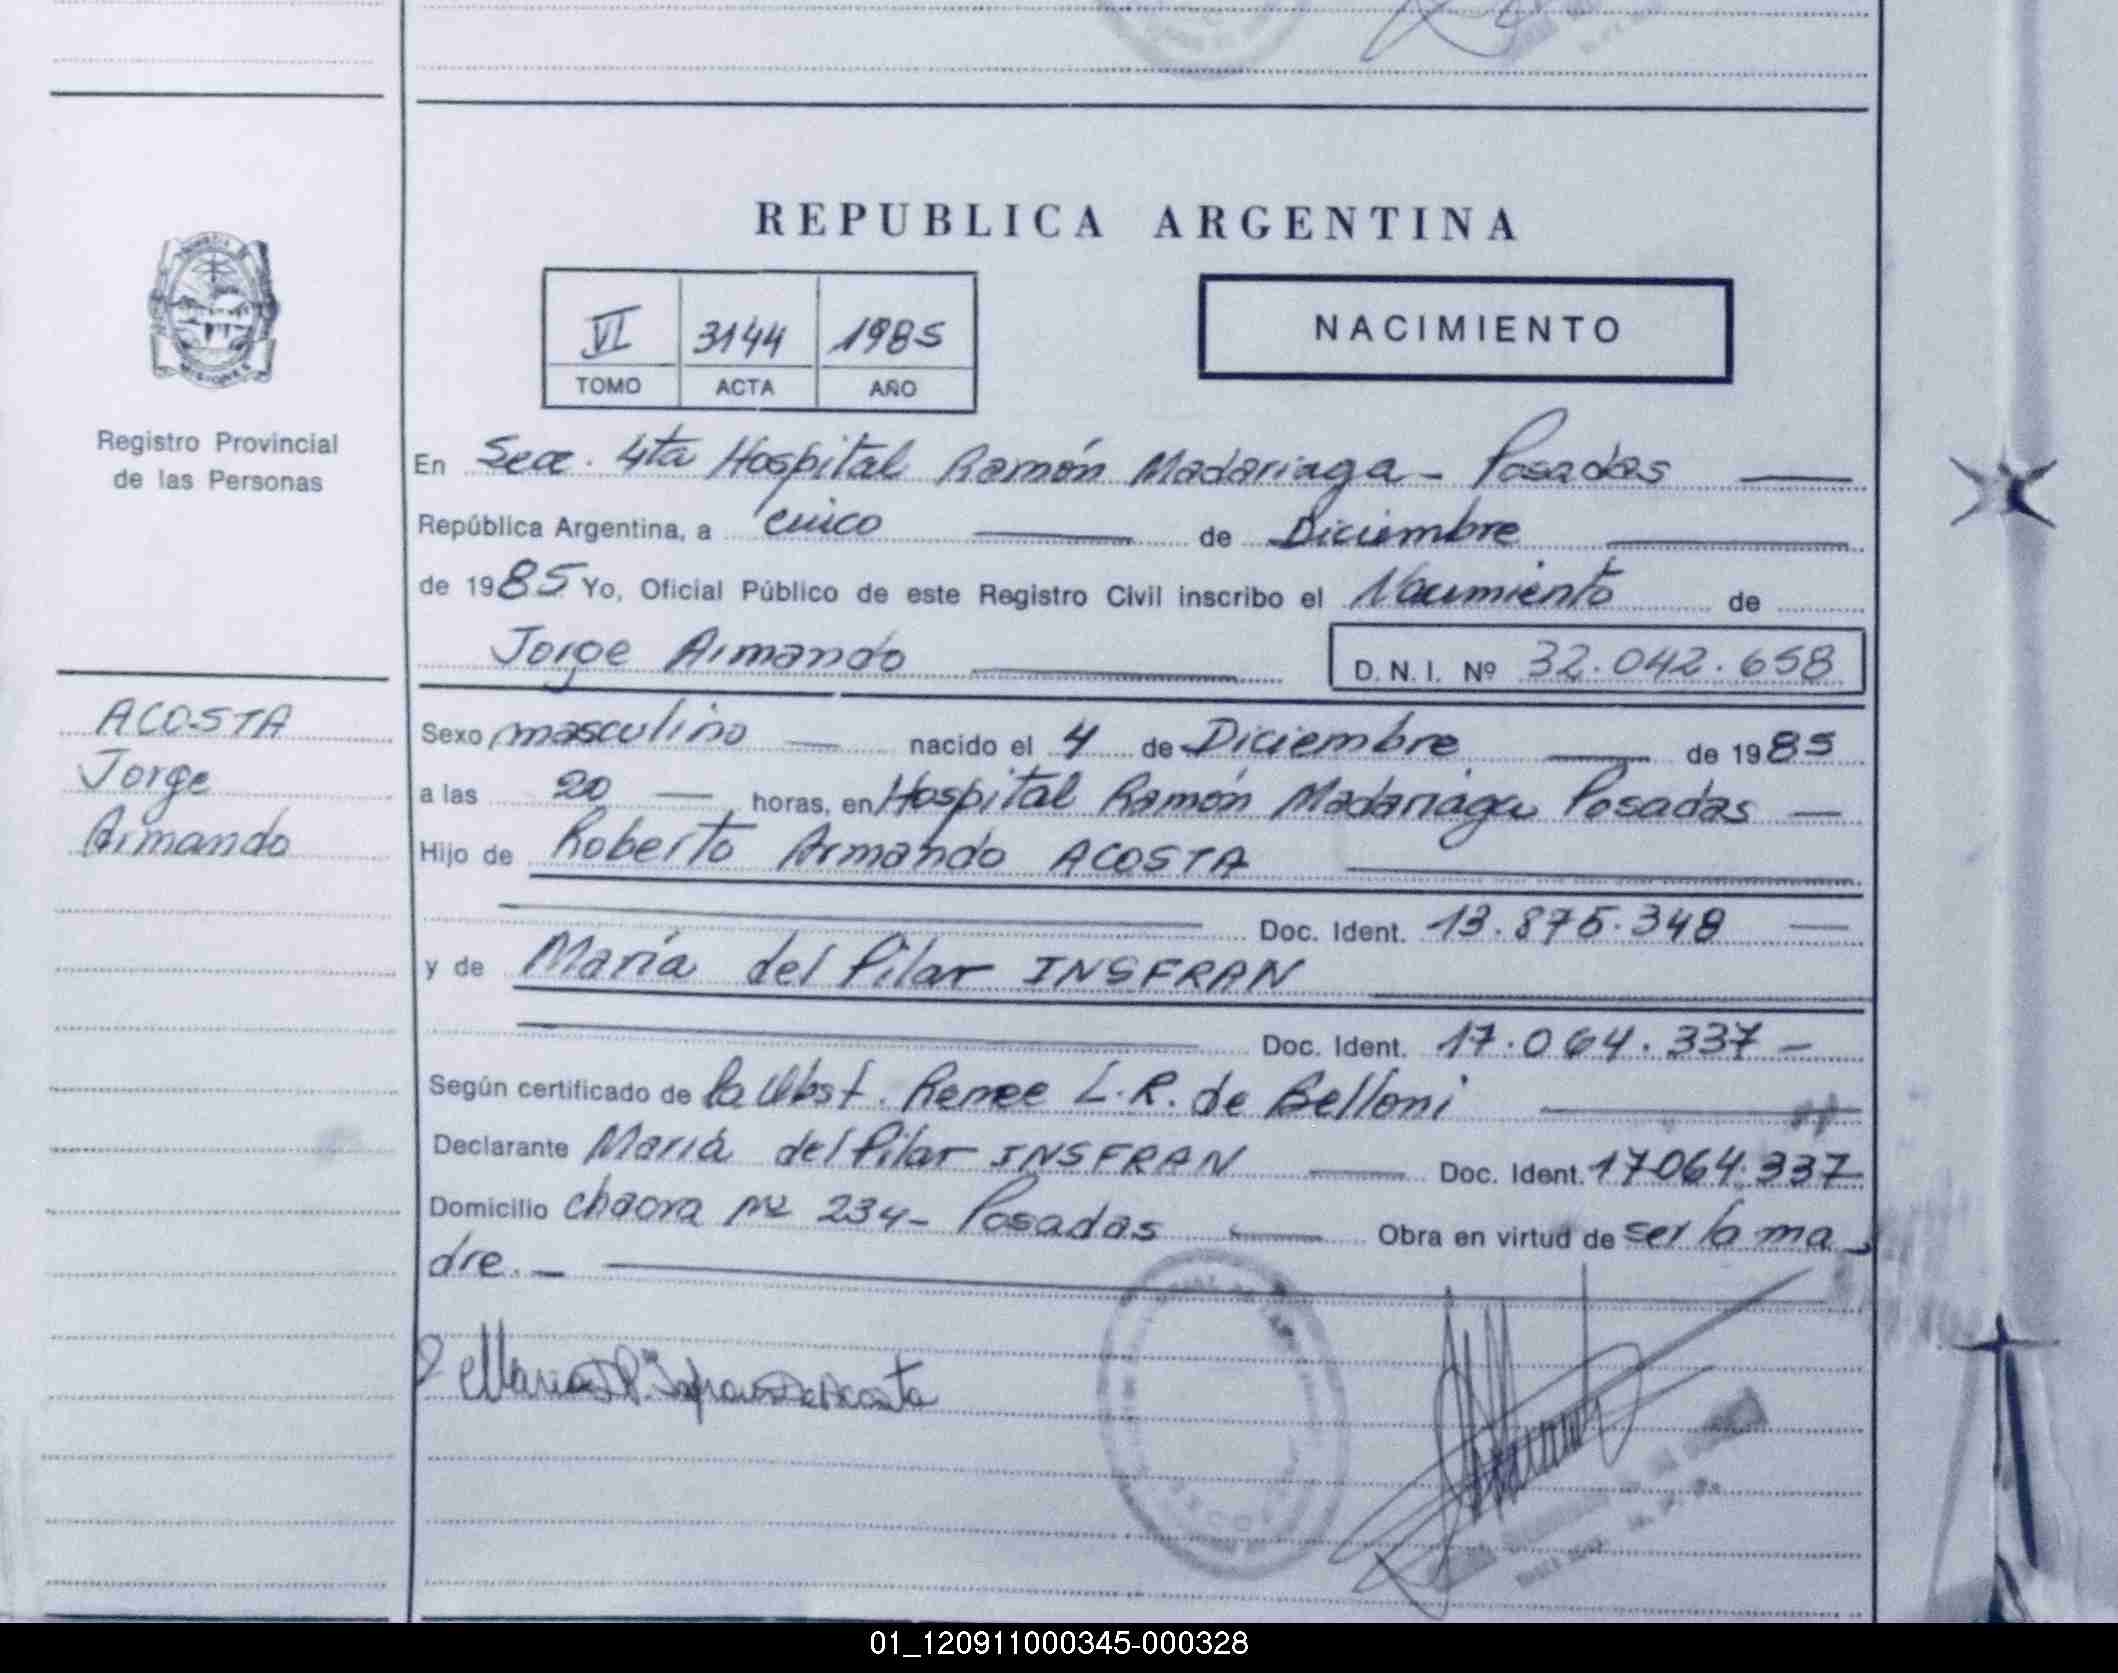 REPUBLICA ARGENTINA
VI 3144 1985
TOMO ACTA AÑO
NACIMIENTO
Registro Provincial
de las Personas
En Secc. 4ta Hospital Ramón Madariaga - Posadas
República Argentina, a cinco de Diciembre
de 1985 Yo, Oficial Público de este Registro Civil inscribo el Nacimiento de
Jorge Armando D.N.I. Nº 32.042.658
ACOSTA
Jorge
Armando
Sexo masculino nacido el 4 de Diciembre de 1985
a las 20 horas, en Hospital Ramón Madariaga Posadas
Hijo de Roberto Armando ACOSTA
Doc. Ident. 13.875.348
y de María del Pilar INSFRAN
Doc. Ident. 17.064.337
Según certificado de la Obst. Renee L.R. de Belloni
Declarante María del Pilar INSFRAN Doc. Ident. 17064.337
Domicilio chacra Nº 234 - Posadas Obra en virtud de ser la ma
dre.
01_120911000345-000328